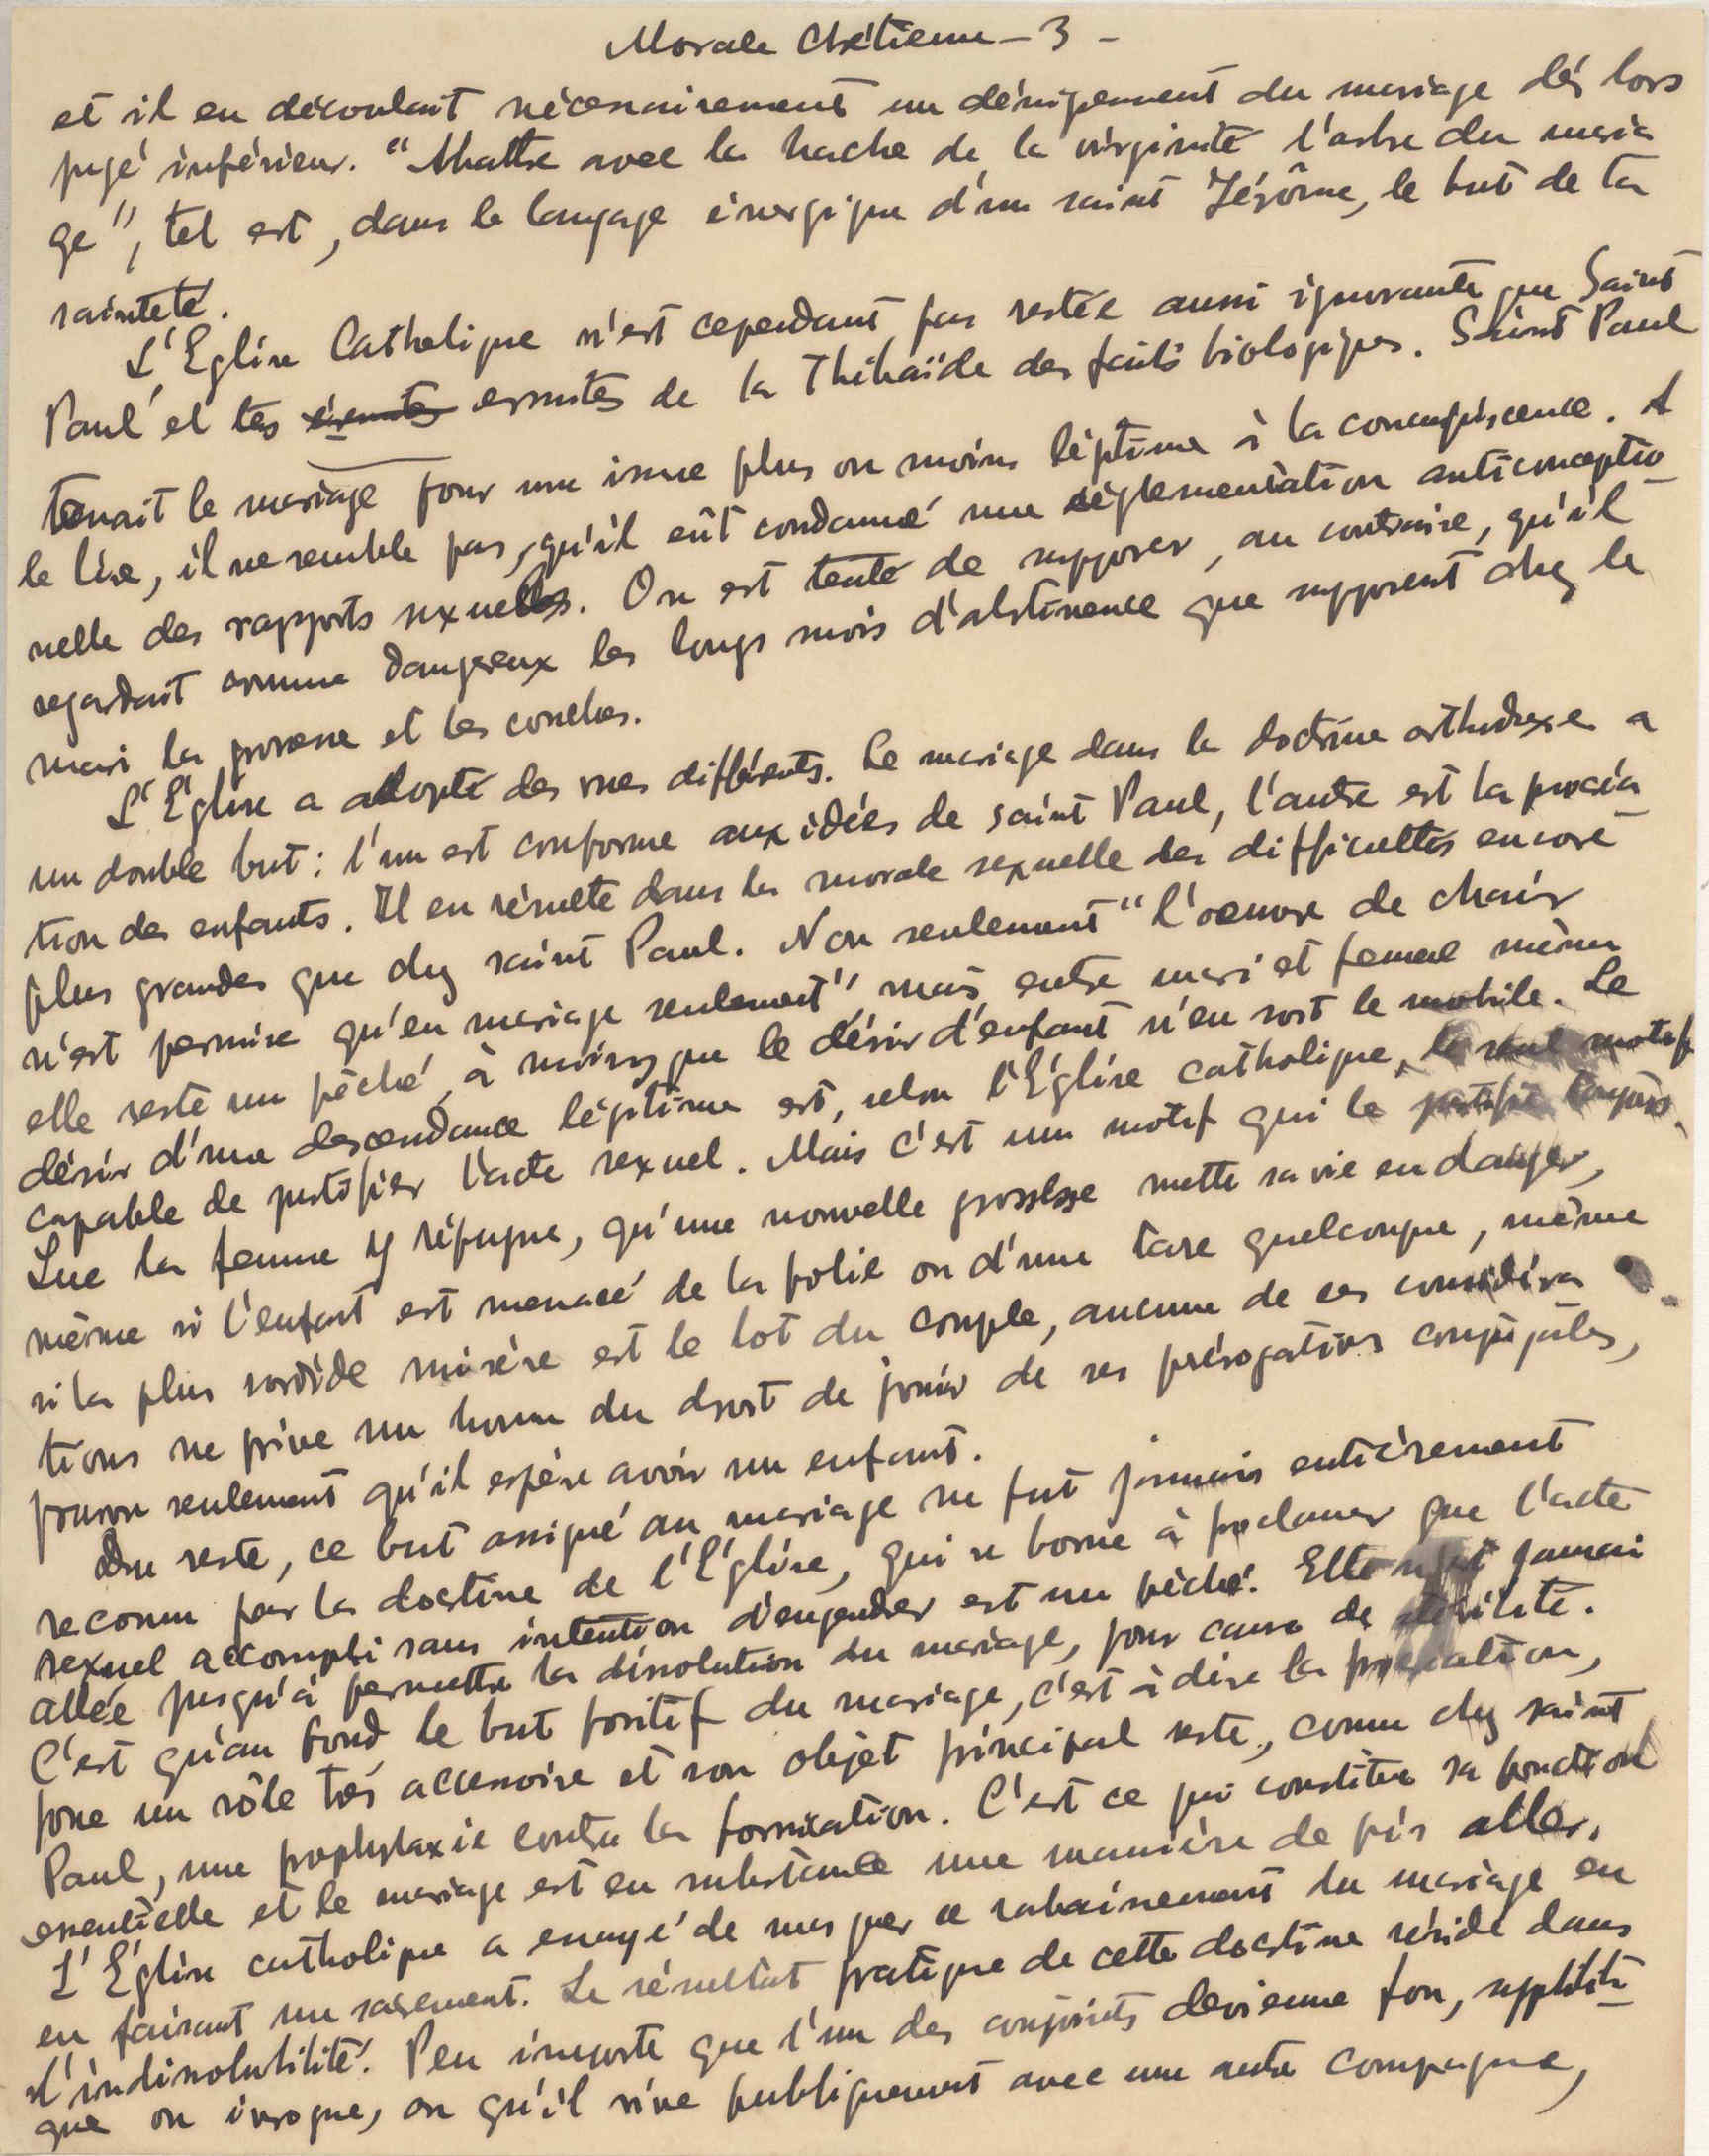 Morale Chrétienne - 3 -
et il en découlait nécessairement un dénigrement du mariage dès lors
jugé inférieur. "Abattre avec la hache de la virginité l'arbre du maria
ge", tel est, dans le langage énergique d'un saint Jérôme, le but de ta
sainteté.
L'Eglise Catholique n'est cependant pas restée aussi ignorante que Saint
Paul et les ermites de la Thébaïde des faits biologiques. Saint Paul
tenait le mariage pour une issue plus ou moins légitime à la concupiscence. A
le lire, il ne semble pas, qu'il eût condamné une réglementation anticonceptio_
nelle des rapports sexuels. On est tenté de supposer, au contraire, qu'il
regardait comme dangereux les longs mois d'abstinence que supposent chez le
mari la grossesse et les couches.
L'Eglise a adopté des vues différents. Le mariage dans la doctrine orthodoxe a
un double but: l'un est conforme aux idées de saint Paul, l'autre est la procréa_
tion des enfants. Il en résulte dans la morale sexuelle des difficultés encore
plus grandes que chez saint Paul. Non seulement "l'oeuvre de chair
n'est permise qu'en mariage seulement", mais, entre mari et femme même
elle reste un péché, à moins que le désir d'enfant n'en soit le mobile. Le
désir d'une descendance légitime est, selon l'Église catholique, le seul motif
capable de justifier l'acte sexuel. Mais c'est un motif qui le justifie toujours.
Que la femme y répugne, qu'une nouvelle grossesse mette sa vie en danger,
même si l'enfant est menacé de la folie ou d'une tare quelconque, même
si la plus sordide misère est le lot du couple, aucune de ces considéra
tions ne prive un homme du droit de jouir de ses prérogatives conjugales,
pourvu seulement qu'il espère avoir un enfant.
Du reste, ce but assigné au mariage ne fut jamais entièrement
reconnu par la doctrine de l'Église, qui se borne à proclamer que l'acte
sexuel accompli sans intention d'engendrer est un péché. Elle n'est jamais
allée jusqu'à permettre la dissolution du mariage, pour cause de stérilité.
C'est qu'au fond le but positif du mariage, c'est à dire la procréation,
joue un rôle très accessoire et son objet principal reste, comme chez saint
Paul, une prophylaxie contre la fornication. C'est ce qui constitue sa fonction
essentielle et le mariage est en substance une manière de pis aller.
L'Église catholique a essayé de masquer ce rabaissement du mariage en
en faisant un sacrement. Le résultat pratique de cette doctrine réside dans
l'indissolubilité. Peu importe que l'un des conjoints devienne fou, syphiliti_
que ou ivrogne, ou qu'il vive publiquement avec une autre compagne,